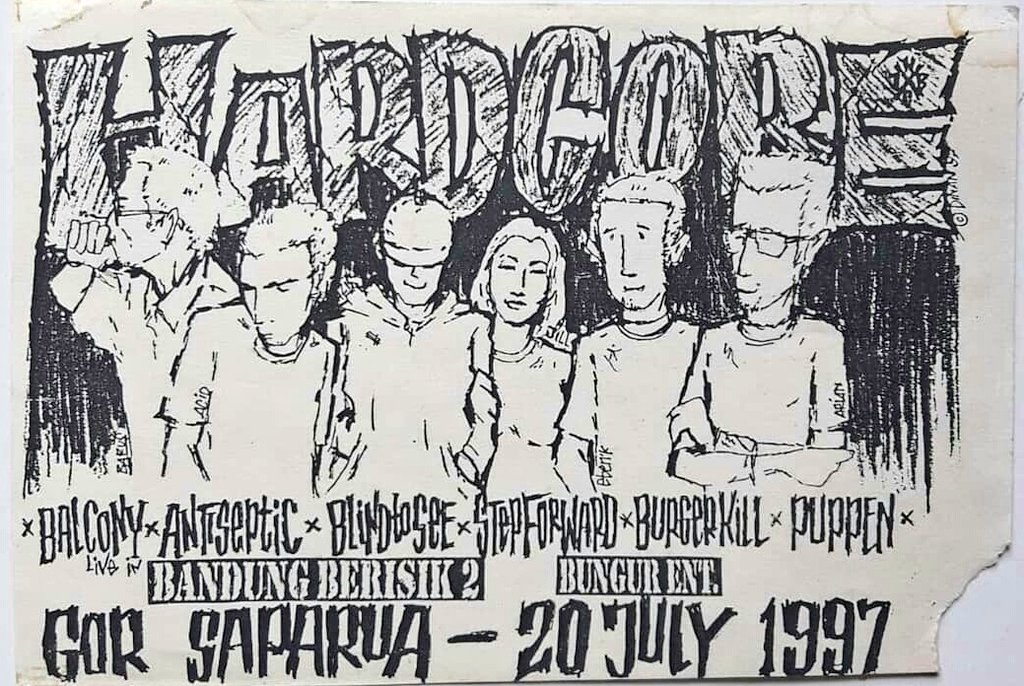 HARDCORE
BARUZ
ACID
JILL
EBENK
ARIAN
× BALCONY × ANTISEPTIC × BLINDTOSEE × STEPFORWARD × BURGERKILL × PUPPEN ×
LIVE IN
BANDUNG BERISIK 2 BUNGUR ENT.
GOR SAPARUA – 20 JULY 1997